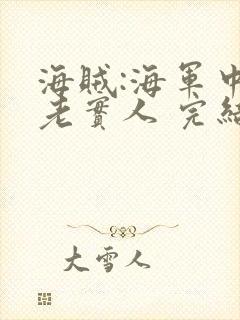 海賊:海軍中
老實人 完結
大雪人